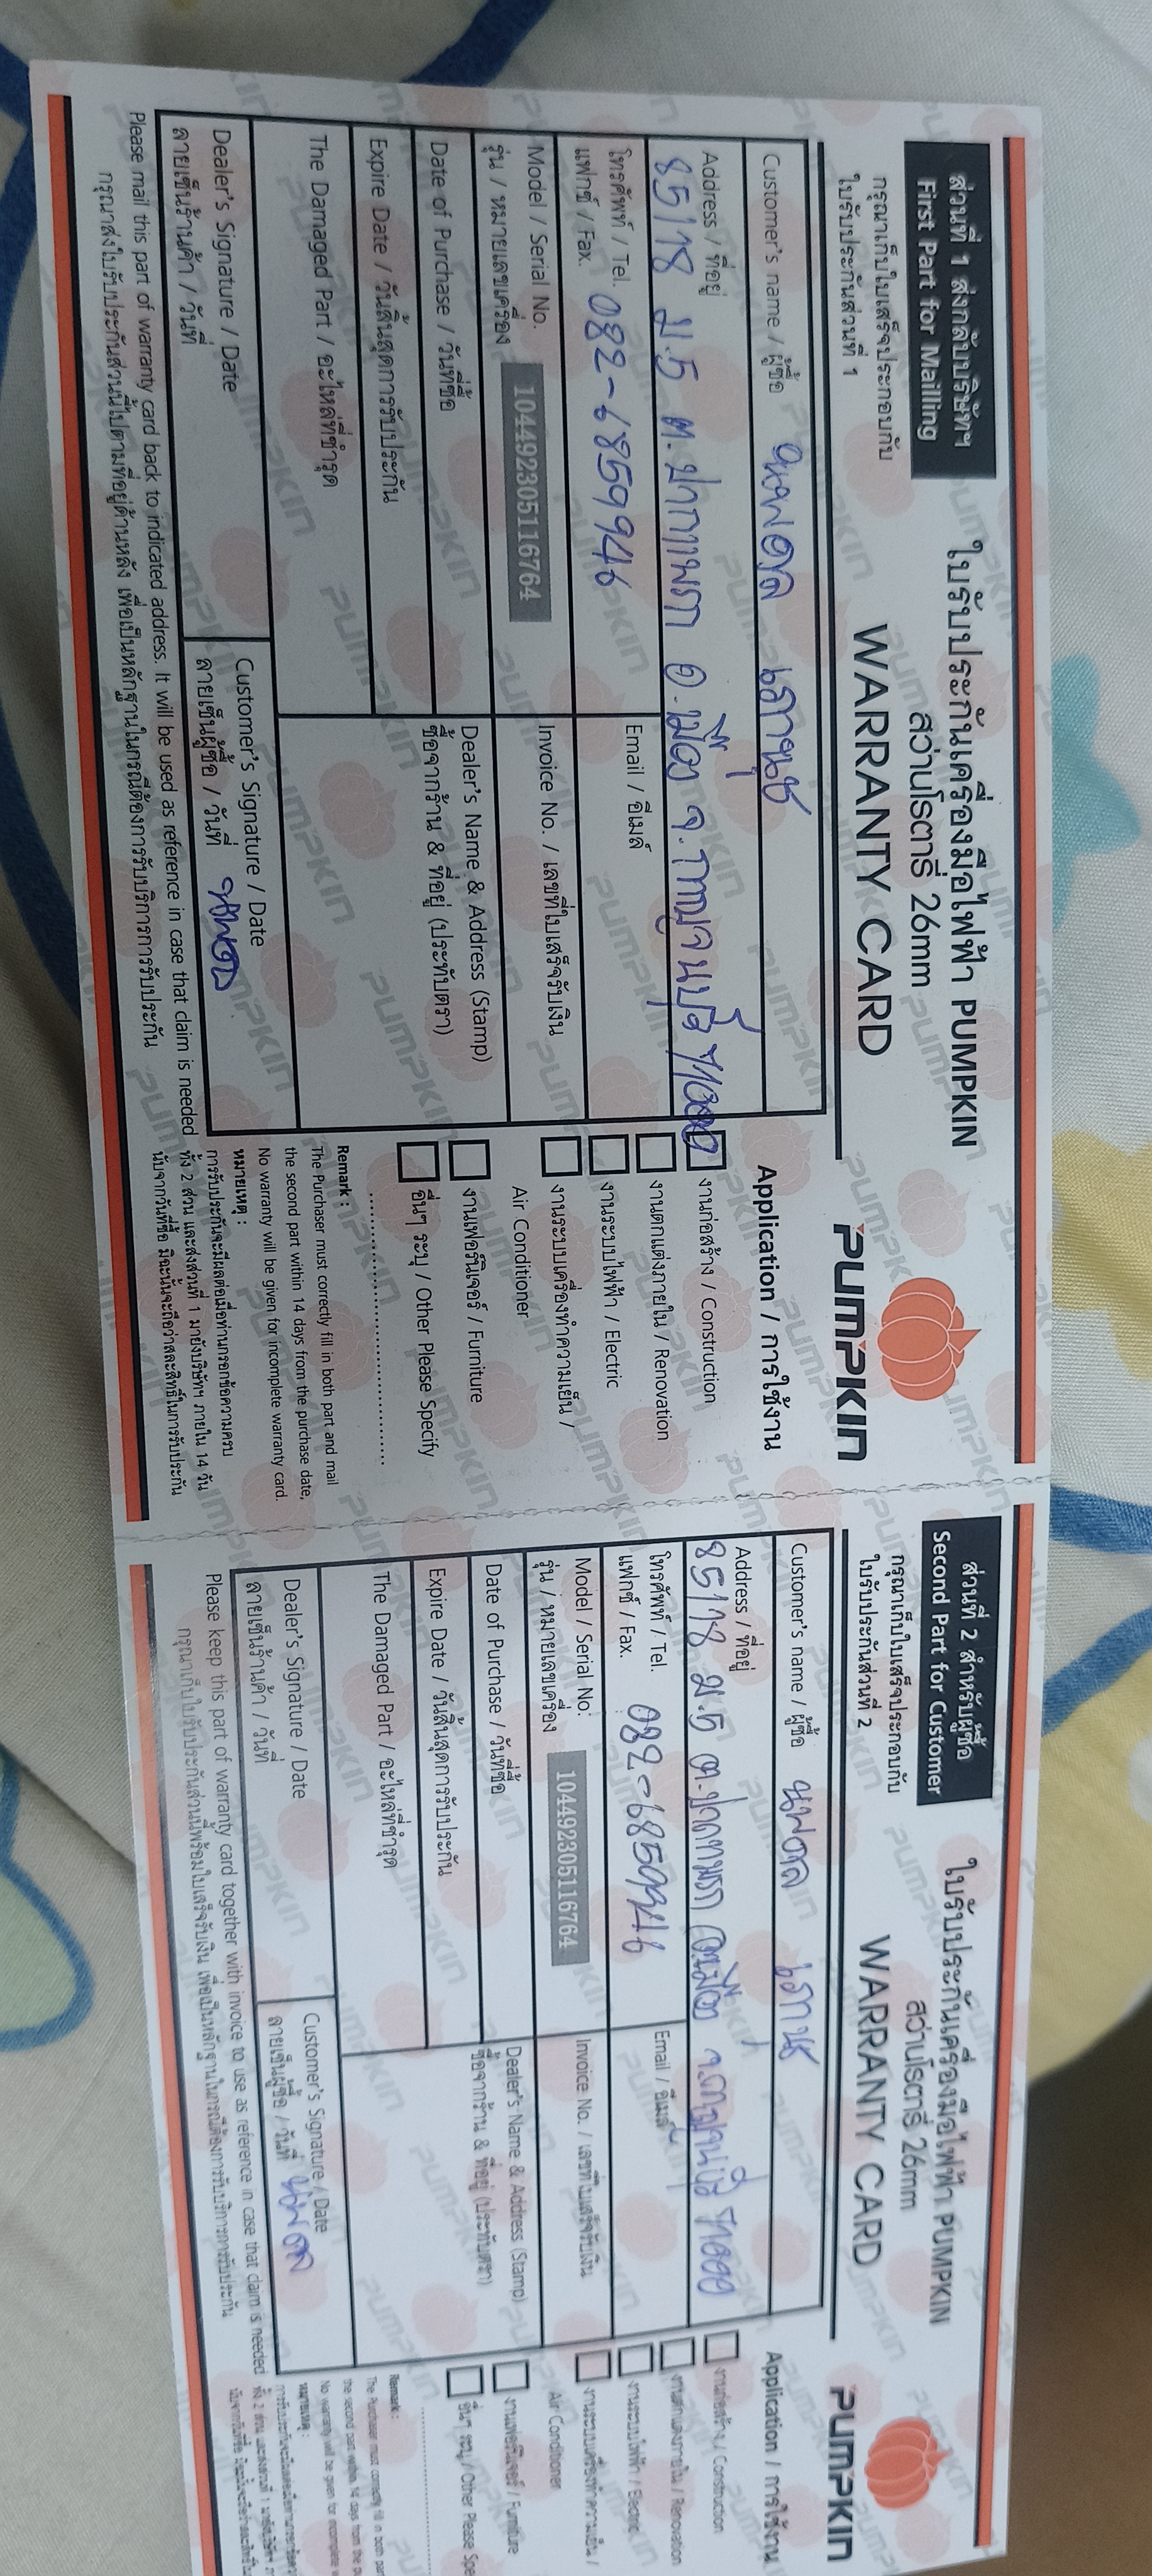 ส่วนที่ 1 ส่งกลับบริษัทฯ
First Part for Mailling
กรุณาเก็บใบเสร็จประกอบกับ
ใบรับประกันส่วนที่ 1
ใบรับประกันเครื่องมือไฟฟ้า PUMPKIN
สว่านโรตารี่ 26mm
WARRANTY CARD
PUMPKIN
Customer's name / ผู้ซื้อ
Address / ที่อยู่
85/78 ม.5 ต.ปากแพรก อ.เมือง จ.กาญจนบุรี 71000
โทรศัพท์ / Tel. 082-6859946
แฟกซ์ / Fax.
Email / อีเมล์
Model / Serial No.
รุ่น / หมายเลขเครื่อง 1044923051116764
Invoice No. / เลขที่ใบเสร็จรับเงิน
Date of Purchase / วันที่ซื้อ
Dealer's Name & Address (Stamp)
ซื้อจากร้าน & ที่อยู่ (ประทับตรา)
Expire Date / วันสิ้นสุดการรับประกัน
The Damaged Part / อะไหล่ที่ชำรุด
Dealer's Signature / Date
ลายเซ็นร้านค้า / วันที่
Customer's Signature / Date
ลายเซ็นผู้ซื้อ / วันที่
Please mail this part of warranty card back to indicated address. It will be used as reference in case that claim is needed
กรุณาส่งใบรับประกันส่วนนี้ไปตามที่อยู่ด้านหลัง เพื่อเป็นหลักฐานในกรณีต้องการรับบริการการรับประกัน
Application / การใช้งาน
งานก่อสร้าง / Construction
งานตกแต่งภายใน / Renovation
งานระบบไฟฟ้า / Electric
งานระบบเครื่องทำความเย็น /
Air Conditioner
งานเฟอร์นิเจอร์ / Furniture
อื่นๆ ระบุ / Other Please Specify
Remark :
The Purchaser must correctly fill in both part and mail
the second part within 14 days from the purchase date,
No warranty will be given for incomplete warranty card.
หมายเหตุ :
การรับประกันจะมีผลต่อเมื่อท่านกรอกข้อความครบ
ทั้ง 2 ส่วน และส่งส่วนที่ 1 มายังบริษัทฯ ภายใน 14 วัน
นับจากวันที่ซื้อ มิฉะนั้นจะถือว่าสละสิทธิ์ในการรับประกัน
ส่วนที่ 2 สำหรับผู้ซื้อ
Second Part for Customer
กรุณาเก็บใบเสร็จประกอบกับ
ใบรับประกันส่วนที่ 2
ใบรับประกันเครื่องมือไฟฟ้า PUMPKIN
สว่านโรตารี่ 26mm
WARRANTY CARD
PUMPKIN
Customer's name / ผู้ซื้อ
Address / ที่อยู่
85/78 ม.5 ต.ปากแพรก อ.เมือง จ.กาญจนบุรี 71000
โทรศัพท์ / Tel. 082-6859946
แฟกซ์ / Fax.
Email / อีเมล์
Model / Serial No.
รุ่น / หมายเลขเครื่อง 1044923051116764
Invoice No. / เลขที่ใบเสร็จรับเงิน
Date of Purchase / วันที่ซื้อ
Dealer's Name & Address (Stamp)
ซื้อจากร้าน & ที่อยู่ (ประทับตรา)
Expire Date / วันสิ้นสุดการรับประกัน
The Damaged Part / อะไหล่ที่ชำรุด
Dealer's Signature / Date
ลายเซ็นร้านค้า / วันที่
Customer's Signature / Date
ลายเซ็นผู้ซื้อ / วันที่
Please keep this part of warranty card together with invoice to use as reference in case that claim is needed
กรุณาเก็บใบรับประกันส่วนนี้พร้อมใบเสร็จรับเงิน เพื่อเป็นหลักฐานในกรณีต้องการรับบริการการรับประกัน
Application / การใช้งาน
งานก่อสร้าง / Construction
งานตกแต่งภายใน / Renovation
งานระบบไฟฟ้า / Electric
งานระบบเครื่องทำความเย็น /
Air Conditioner
งานเฟอร์นิเจอร์ / Furniture
อื่นๆ ระบุ / Other Please Spe
Remark :